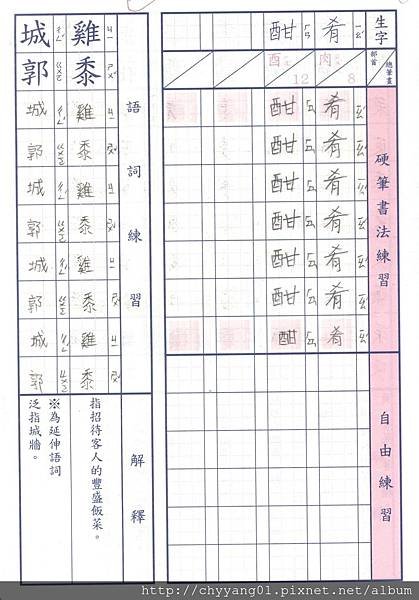 生字
部首
總筆畫
硬筆書法練習
自由練習
肴 ㄧㄠˊ
肉 8
肴
肴
肴
肴
肴
肴
肴
酣 ㄏㄢ
酉 12
酣
酣
酣
酣
酣
酣
酣
語詞練習
解釋
雞黍 ㄐㄧ ㄕㄨˇ
雞
黍
雞
黍
雞
黍
雞
黍
指招待客人的豐盛飯菜。
城郭 ㄔㄥˊ ㄍㄨㄛ
城
郭
城
郭
城
郭
城
郭
※為延伸語詞
泛指城牆。
http://chyyang01.pixnet.net/album